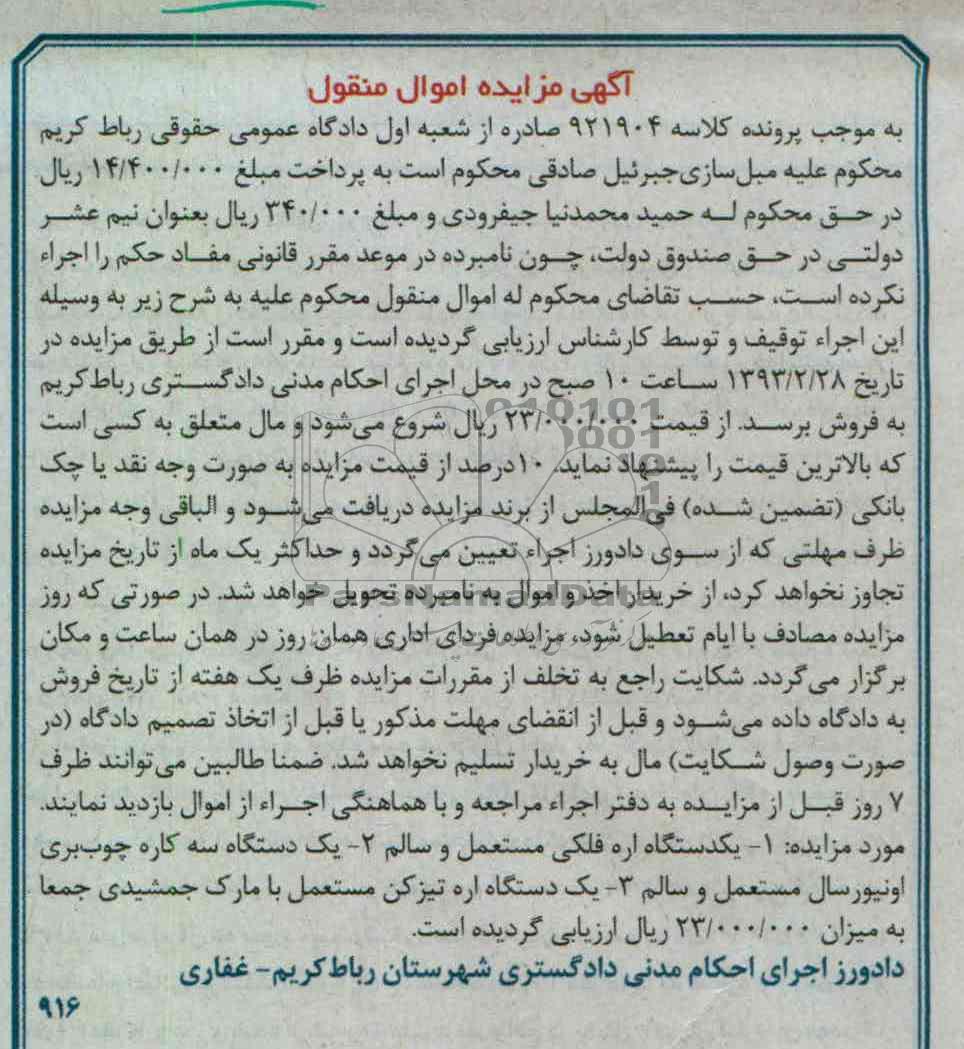 آگهی مزایده اموال منقول
به موجب پرونده کلاسه ۹۲۱۹۰۴ صادره از شعبه اول دادگاه عمومی حقوقی رباط کریم
محکوم علیه مبل‌سازی‌جبرئیل صادقی محکوم است به پرداخت مبلغ ۱۴/۴۰۰/۰۰۰ ریال
در حق محکوم له حمید محمدنیا جیفرودی و مبلغ ۳۴۰/۰۰۰ ریال بعنوان نیم عشر
دولتی در حق صندوق دولت، چون نامبرده در موعد مقرر قانونی مفاد حکم را اجراء
نکرده است، حسب تقاضای محکوم له اموال منقول محکوم علیه به شرح زیر به وسیله
این اجراء توقیف و توسط کارشناس ارزیابی گردیده است و مقرر است از طریق مزایده در
تاریخ ۱۳۹۳/۲/۲۸ ساعت ۱۰ صبح در محل اجرای احکام مدنی دادگستری رباط‌کریم
به فروش برسد. از قیمت ۲۳/۰۰۰/۰۰۰ ریال شروع می‌شود و مال متعلق به کسی است
که بالاترین قیمت را پیشنهاد نماید. ۱۰درصد از قیمت مزایده به صورت وجه نقد یا چک
بانکی (تضمین شده) فی‌المجلس از برند مزایده دریافت می‌شود و الباقی وجه مزایده
ظرف مهلتی که از سوی دادورز اجراء تعیین می‌گردد و حداکثر یک ماه از تاریخ مزایده
تجاوز نخواهد کرد، از خریدار اخذ و اموال به نامبرده تحویل خواهد شد. در صورتی که روز
مزایده مصادف با ایام تعطیل شود، مزایده فردای اداری همان روز در همان ساعت و مکان
برگزار می‌گردد. شکایت راجع به تخلف از مقررات مزایده ظرف یک هفته از تاریخ فروش
به دادگاه داده می‌شود و قبل از انقضای مهلت مذکور یا قبل از اتخاذ تصمیم دادگاه (در
صورت وصول شکایت) مال به خریدار تسلیم نخواهد شد. ضمنا طالبین می‌توانند ظرف
۷ روز قبل از مزایده به دفتر اجراء مراجعه و با هماهنگی اجراء از اموال بازدید نمایند.
مورد مزایده: ۱- یکدستگاه اره فلکی مستعمل و سالم ۲- یک دستگاه سه کاره چوب‌بری
اونیورسال مستعمل و سالم ۳- یک دستگاه اره تیزکن مستعمل با مارک جمشیدی جمعا
به میزان ۲۳/۰۰۰/۰۰۰ ریال ارزیابی گردیده است.
دادورز اجرای احکام مدنی دادگستری شهرستان رباط‌کریم- غفاری
۹۱۶
ParsNamadData